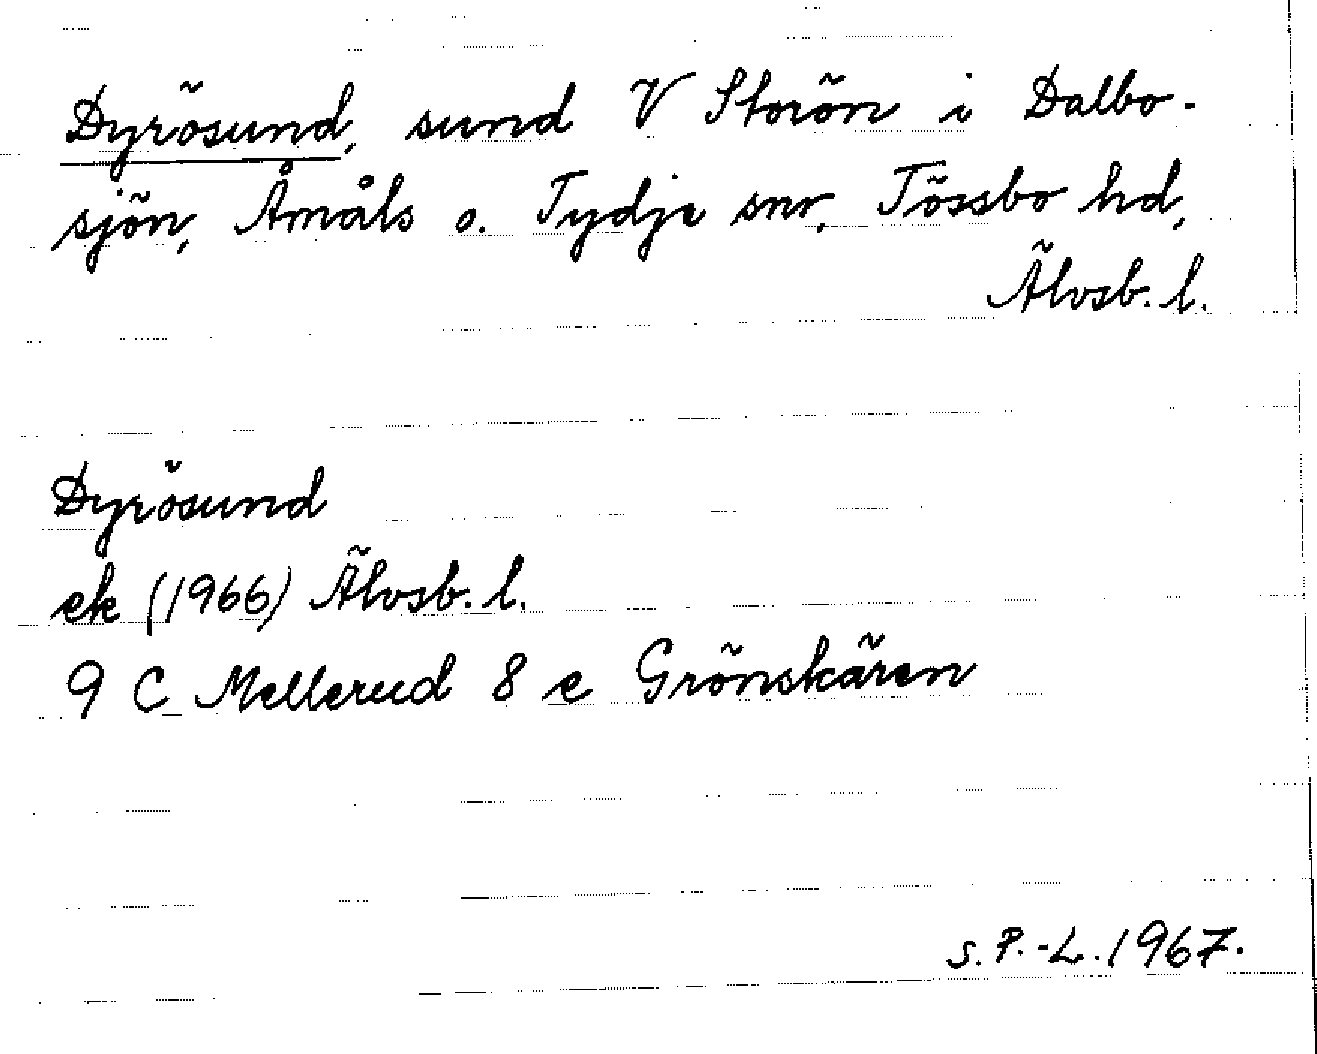 Dyrösund, sund V Storön i Dalbo-
sjön, Åmåls o. Tydje snr, Tössbo hd,
Älvsb. l.
Dyrösund
ek (1966) Älvsb. l.
9 C Mellerud 8 e Grönskären
S. P.-L. 1967.